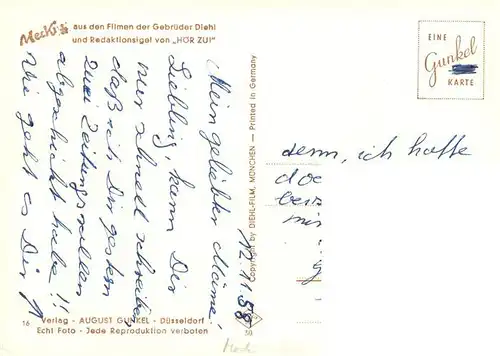 Mecki aus den Filmen der Gebrüder Diehl
und Redaktionsigel von „HÖR ZU!"
EINE
Gunkel
KARTE
12.11.58
Mein geliebter
Liebling, kann Dir
nur schnell schreiben,
daß ich Dir gestern
zwei Zeitungsrollen
abgeschickt habe!!
Wie geht es Dir?
denn, ich hoffe
doc
Copyright by DIEHL-FILM, MÜNCHEN — Printed in Germany
16
Verlag - AUGUST GUNKEL - Düsseldorf
Echt Foto - Jede Reproduktion verboten
50